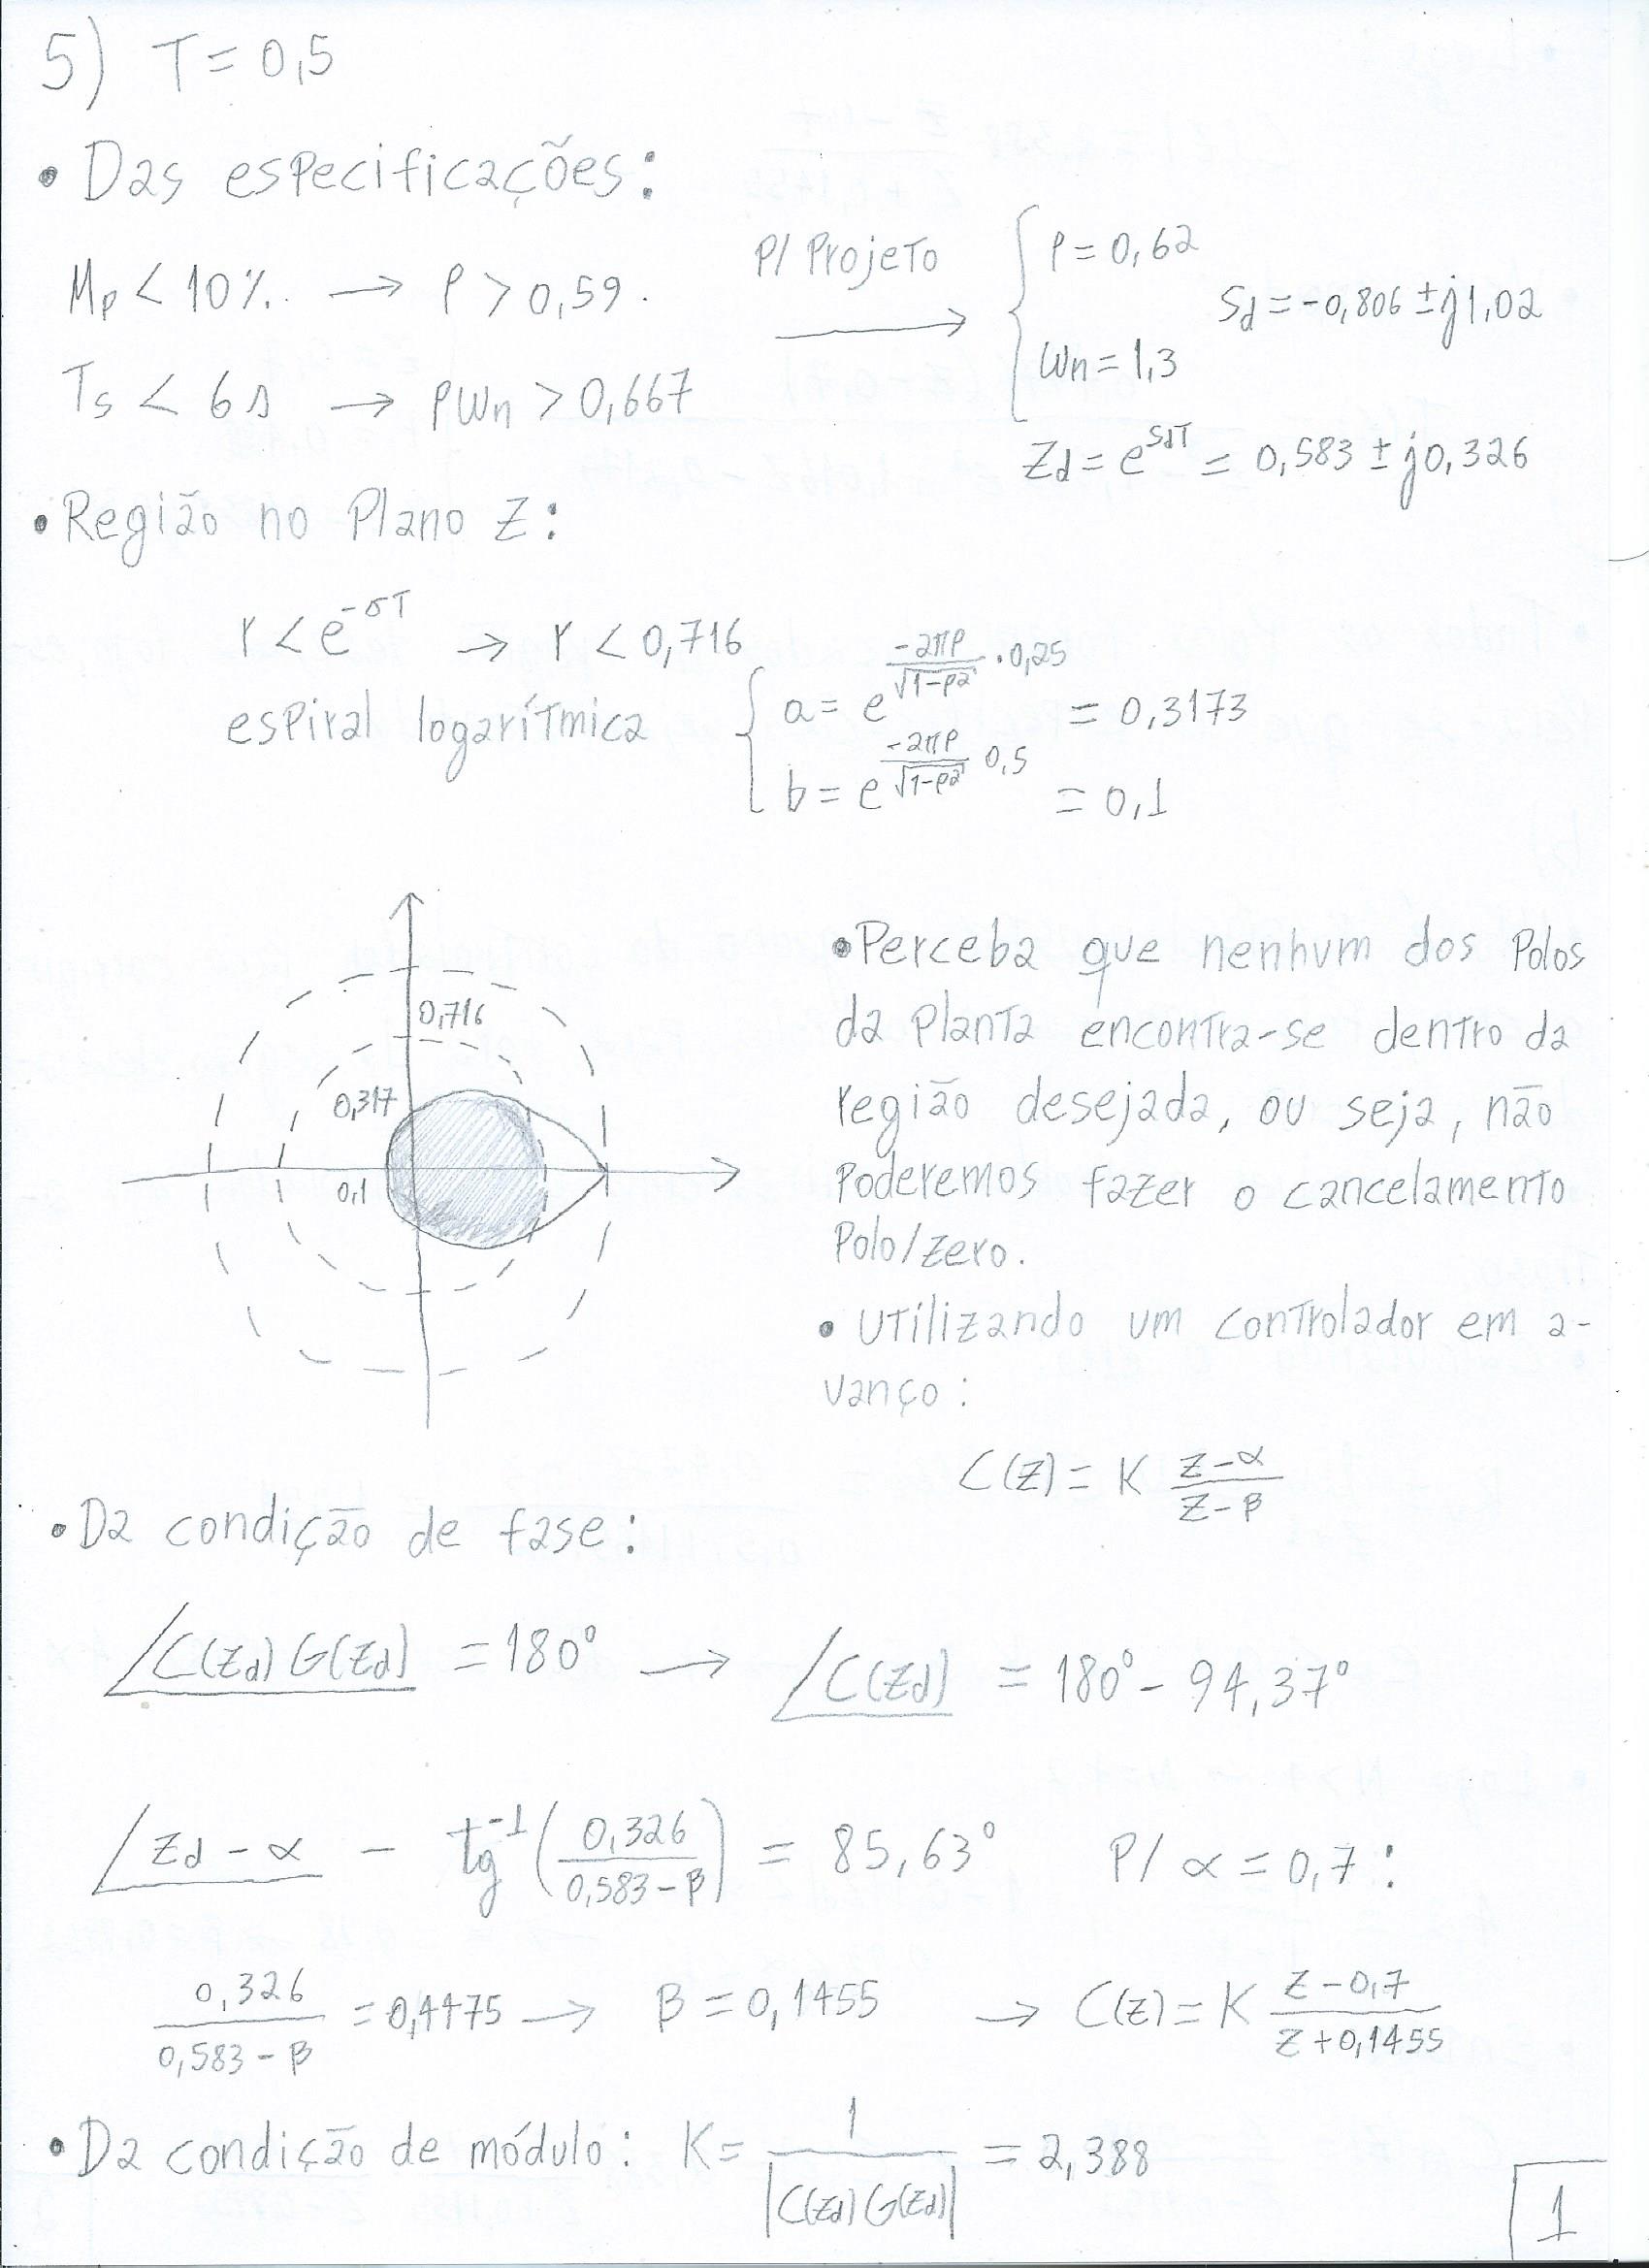 5) T = 0,5
• Das especificações:
Mp < 10%. → ρ > 0,59.
Ts < 6s → ρWn > 0,667
P/ Projeto → { ρ = 0,62
Wn = 1,3
Sd = -0,806 ± j1,02
Zd = e^{SdT} = 0,583 ± j0,326
• Região no Plano Z:
r < e^{-σT} → r < 0,716
espiral logarítmica { a = e^{\frac{-2πρ}{\sqrt{1-ρ²}} · 0,25} = 0,3173
b = e^{\frac{-2πρ}{\sqrt{1-ρ²}} 0,5} = 0,1
0,716
0,317
0,1
• Perceba que nenhum dos Polos
da Planta encontra-se dentro da
região desejada, ou seja, não
Poderemos fazer o cancelamento
Polo/zero.
• Utilizando um controlador em a-
vanço:
C(z) = K \frac{z-α}{z-β}
• Da condição de fase:
∠C(Zd) G(Zd) = 180° → ∠C(Zd) = 180° - 94,37°
∠Zd - α - tg^{-1}(\frac{0,326}{0,583-β}) = 85,63° P/ α = 0,7:
\frac{0,326}{0,583-β} = 0,4475 → β = 0,1455 → C(z) = K \frac{z-0,7}{z+0,1455}
• Da condição de módulo: K = \frac{1}{|C(Zd) G(Zd)|} = 2,388
1